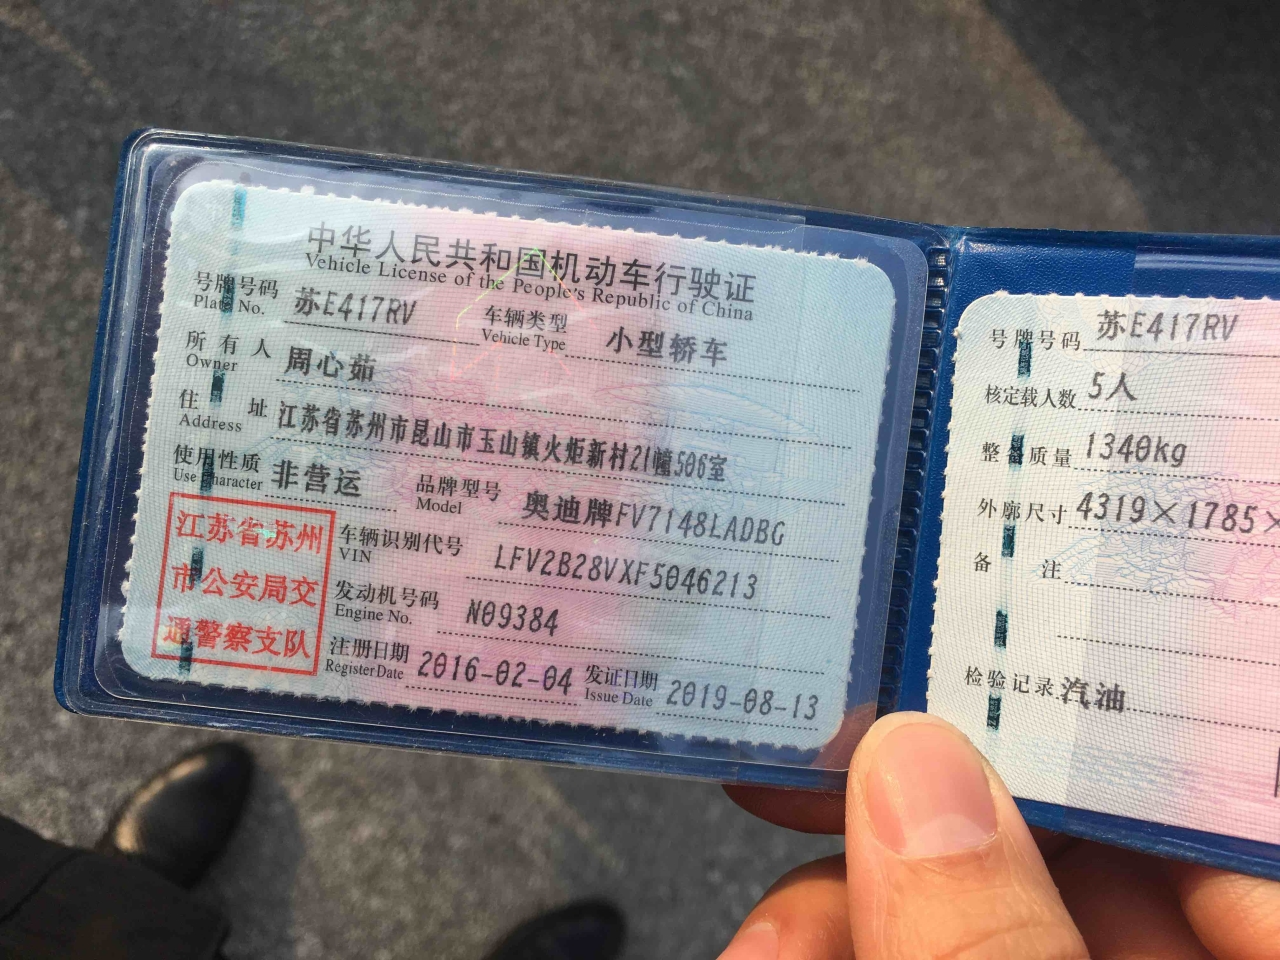 中华人民共和国机动车行驶证
Vehicle License of the People's Republic of China
号牌号码 苏E417RV 车辆类型 小型轿车
Plate No. Vehicle Type
所有人 周心茹
Owner
住址 江苏省苏州市昆山市玉山镇火炬新村21幢506室
Address
使用性质 非营运 品牌型号 奥迪牌FV7148LADBG
Use Character Model
江苏省苏州
市公安局交
通警察支队
车辆识别代号 LFV2B28VXF5046213
VIN
发动机号码 N09384
Engine No.
注册日期 2016-02-04 发证日期 2019-08-13
Register Date Issue Date
号牌号码 苏E417RV
核定载人数 5人
整备质量 1340kg
外廓尺寸 4319×1785×
备注
检验记录 汽油